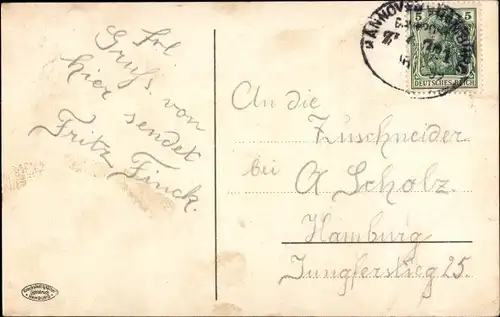 Frl.
Gruß von
hier sendet
Fritz Finck.
5 5
DEUTSCHES REICH
An die
Zuschneider
bei A Scholz.
Hamburg
Jungfernstieg 25.